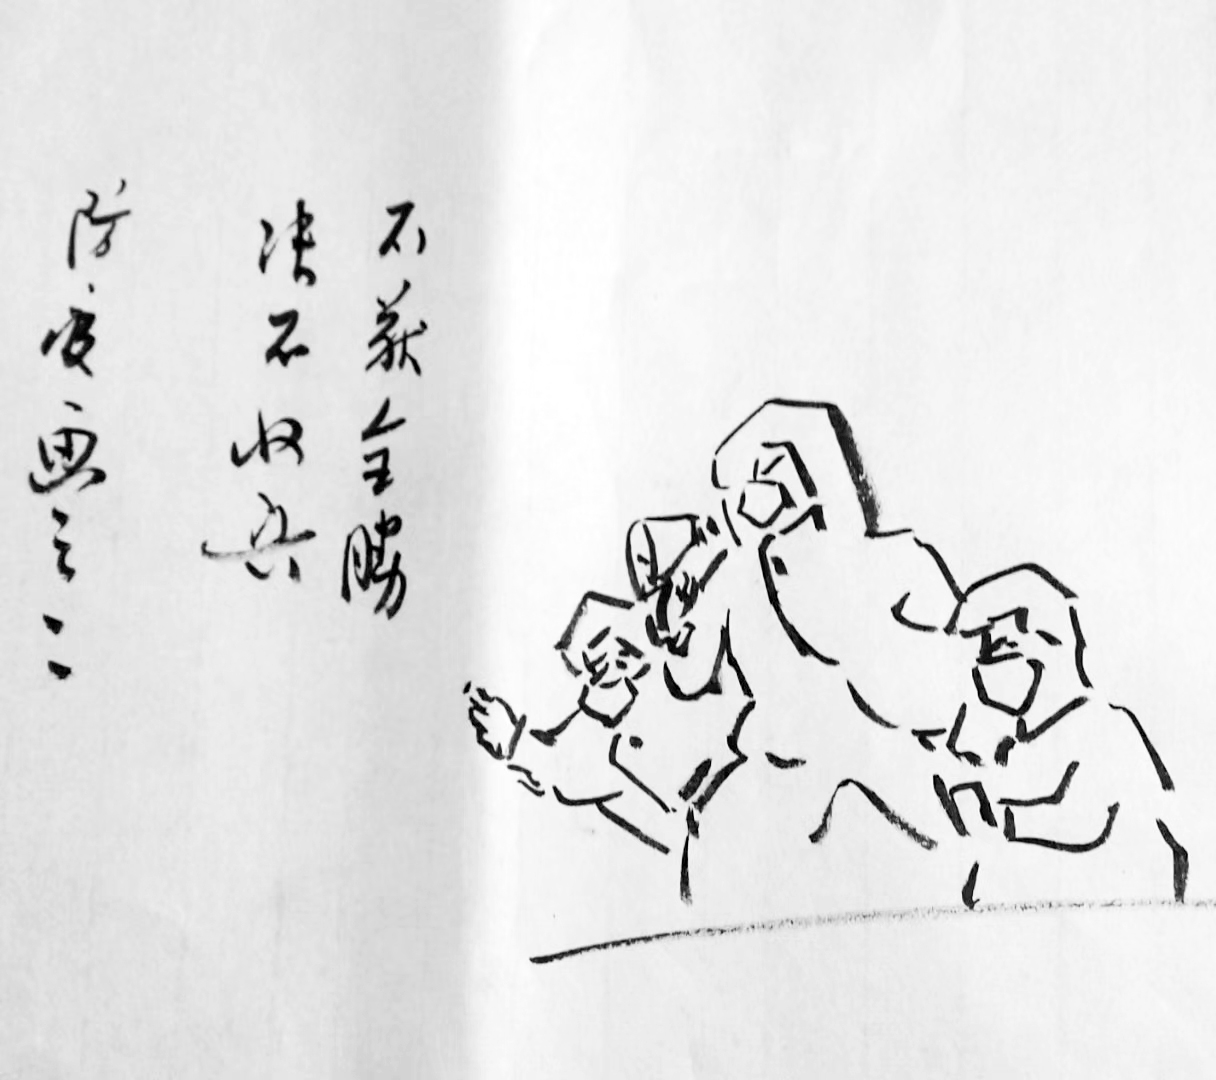 不获全勝
决不收兵
防疫画之二